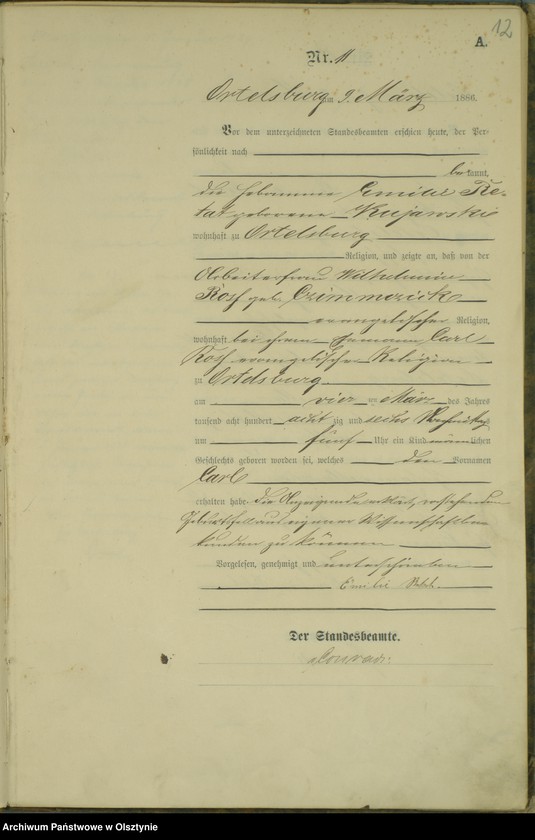 12
A.
Nr. 11
Ortelsburg am 9. März 1886.
Vor dem unterzeichneten Standesbeamten erschien heute, der Per-
sönlichkeit nach
bekannt,
die Hebamme Emilie Re-
tat geborene Kujawski
wohnhaft zu Ortelsburg
Religion, und zeigte an, daß von der
Arbeiterfrau Wilhelmine
Rosf geb. Czimmezick
evangelischer Religion,
wohnhaft bei ihrem Ehemann Carl
Rosf evangelischer Religion
zu Ortelsburg
am vier ten März des Jahres
tausend acht hundert acht zig und sechs Nachmittags
um fünf Uhr ein Kind männlichen
Geschlechts geboren worden sei, welches den Vornamen
Carl
erhalten habe. Die Anzeigende erklärt, vorstehenden
Geburtsfall aus eigener Wissenschaft be-
kunden zu können
Vorgelesen, genehmigt und unterschrieben
Emilie
Der Standesbeamte.
Conrad.
Archiwum Państwowe w Olsztynie